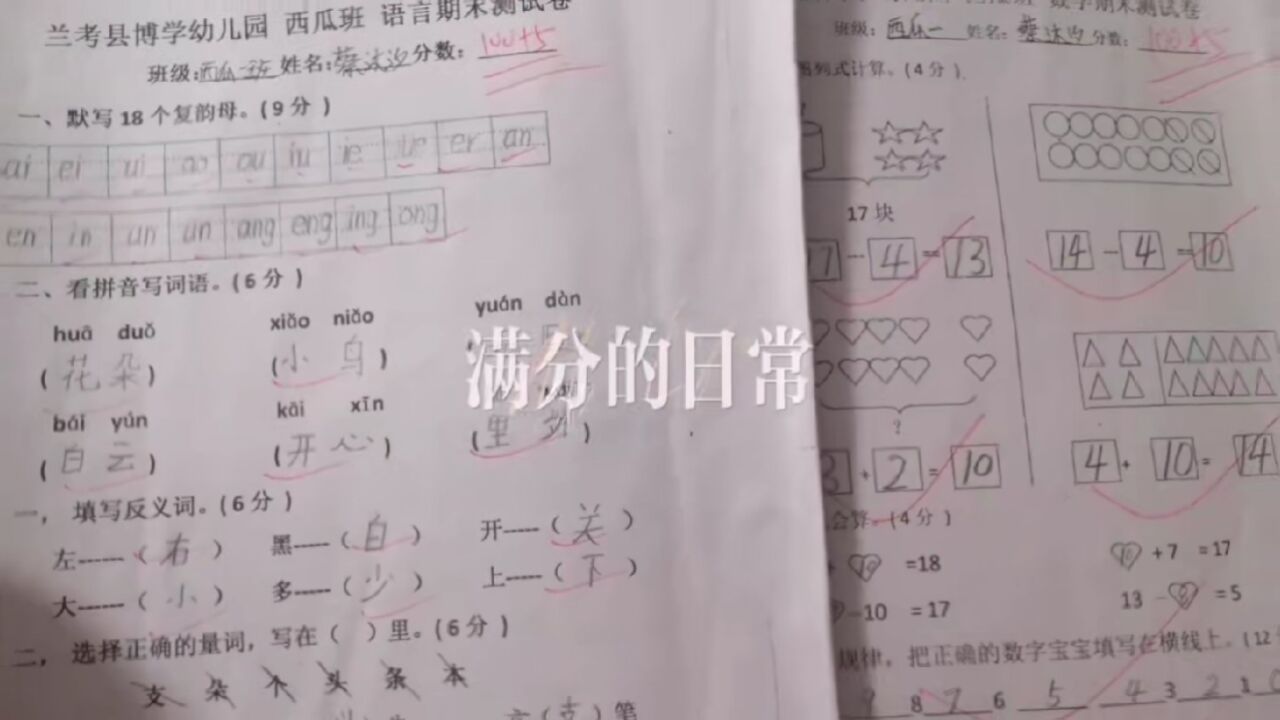 兰考县博学幼儿园 西瓜班 语言期末测试卷
班级:西瓜一班 姓名:蔡沐汐 分数: 100+5
一、默写18个复韵母。(9分)
ai ei ui ao ou iu ie üe er an
en in un ün ang eng ing ong
二、看拼音写词语。(6分)
huā duǒ xiǎo niǎo yuán dàn
(花朵) (小鸟)
bái yún kāi xīn
(白云) (开心) (里
一，填写反义词。(6分)
左-----(右) 黑-----(白) 开-----(关)
大------(小) 多-----(少) 上-----(下)
二，选择正确的量词，写在( )里。(6分)
支 朵 个 头 条 本
(支)笔
满分的日常
数学期末测试卷
班级: 西瓜一 姓名: 蔡沐汐 分数: 100+5
列式计算。(4分)
17块
-4=13
14-4=10
?
+2=10
4+10=14
(4分)
=18
10+7=17
-10=17
13-8=5
规律，把正确的数字宝宝填写在横线上。(12
9 8 7 6 5 4 3 2 1 0